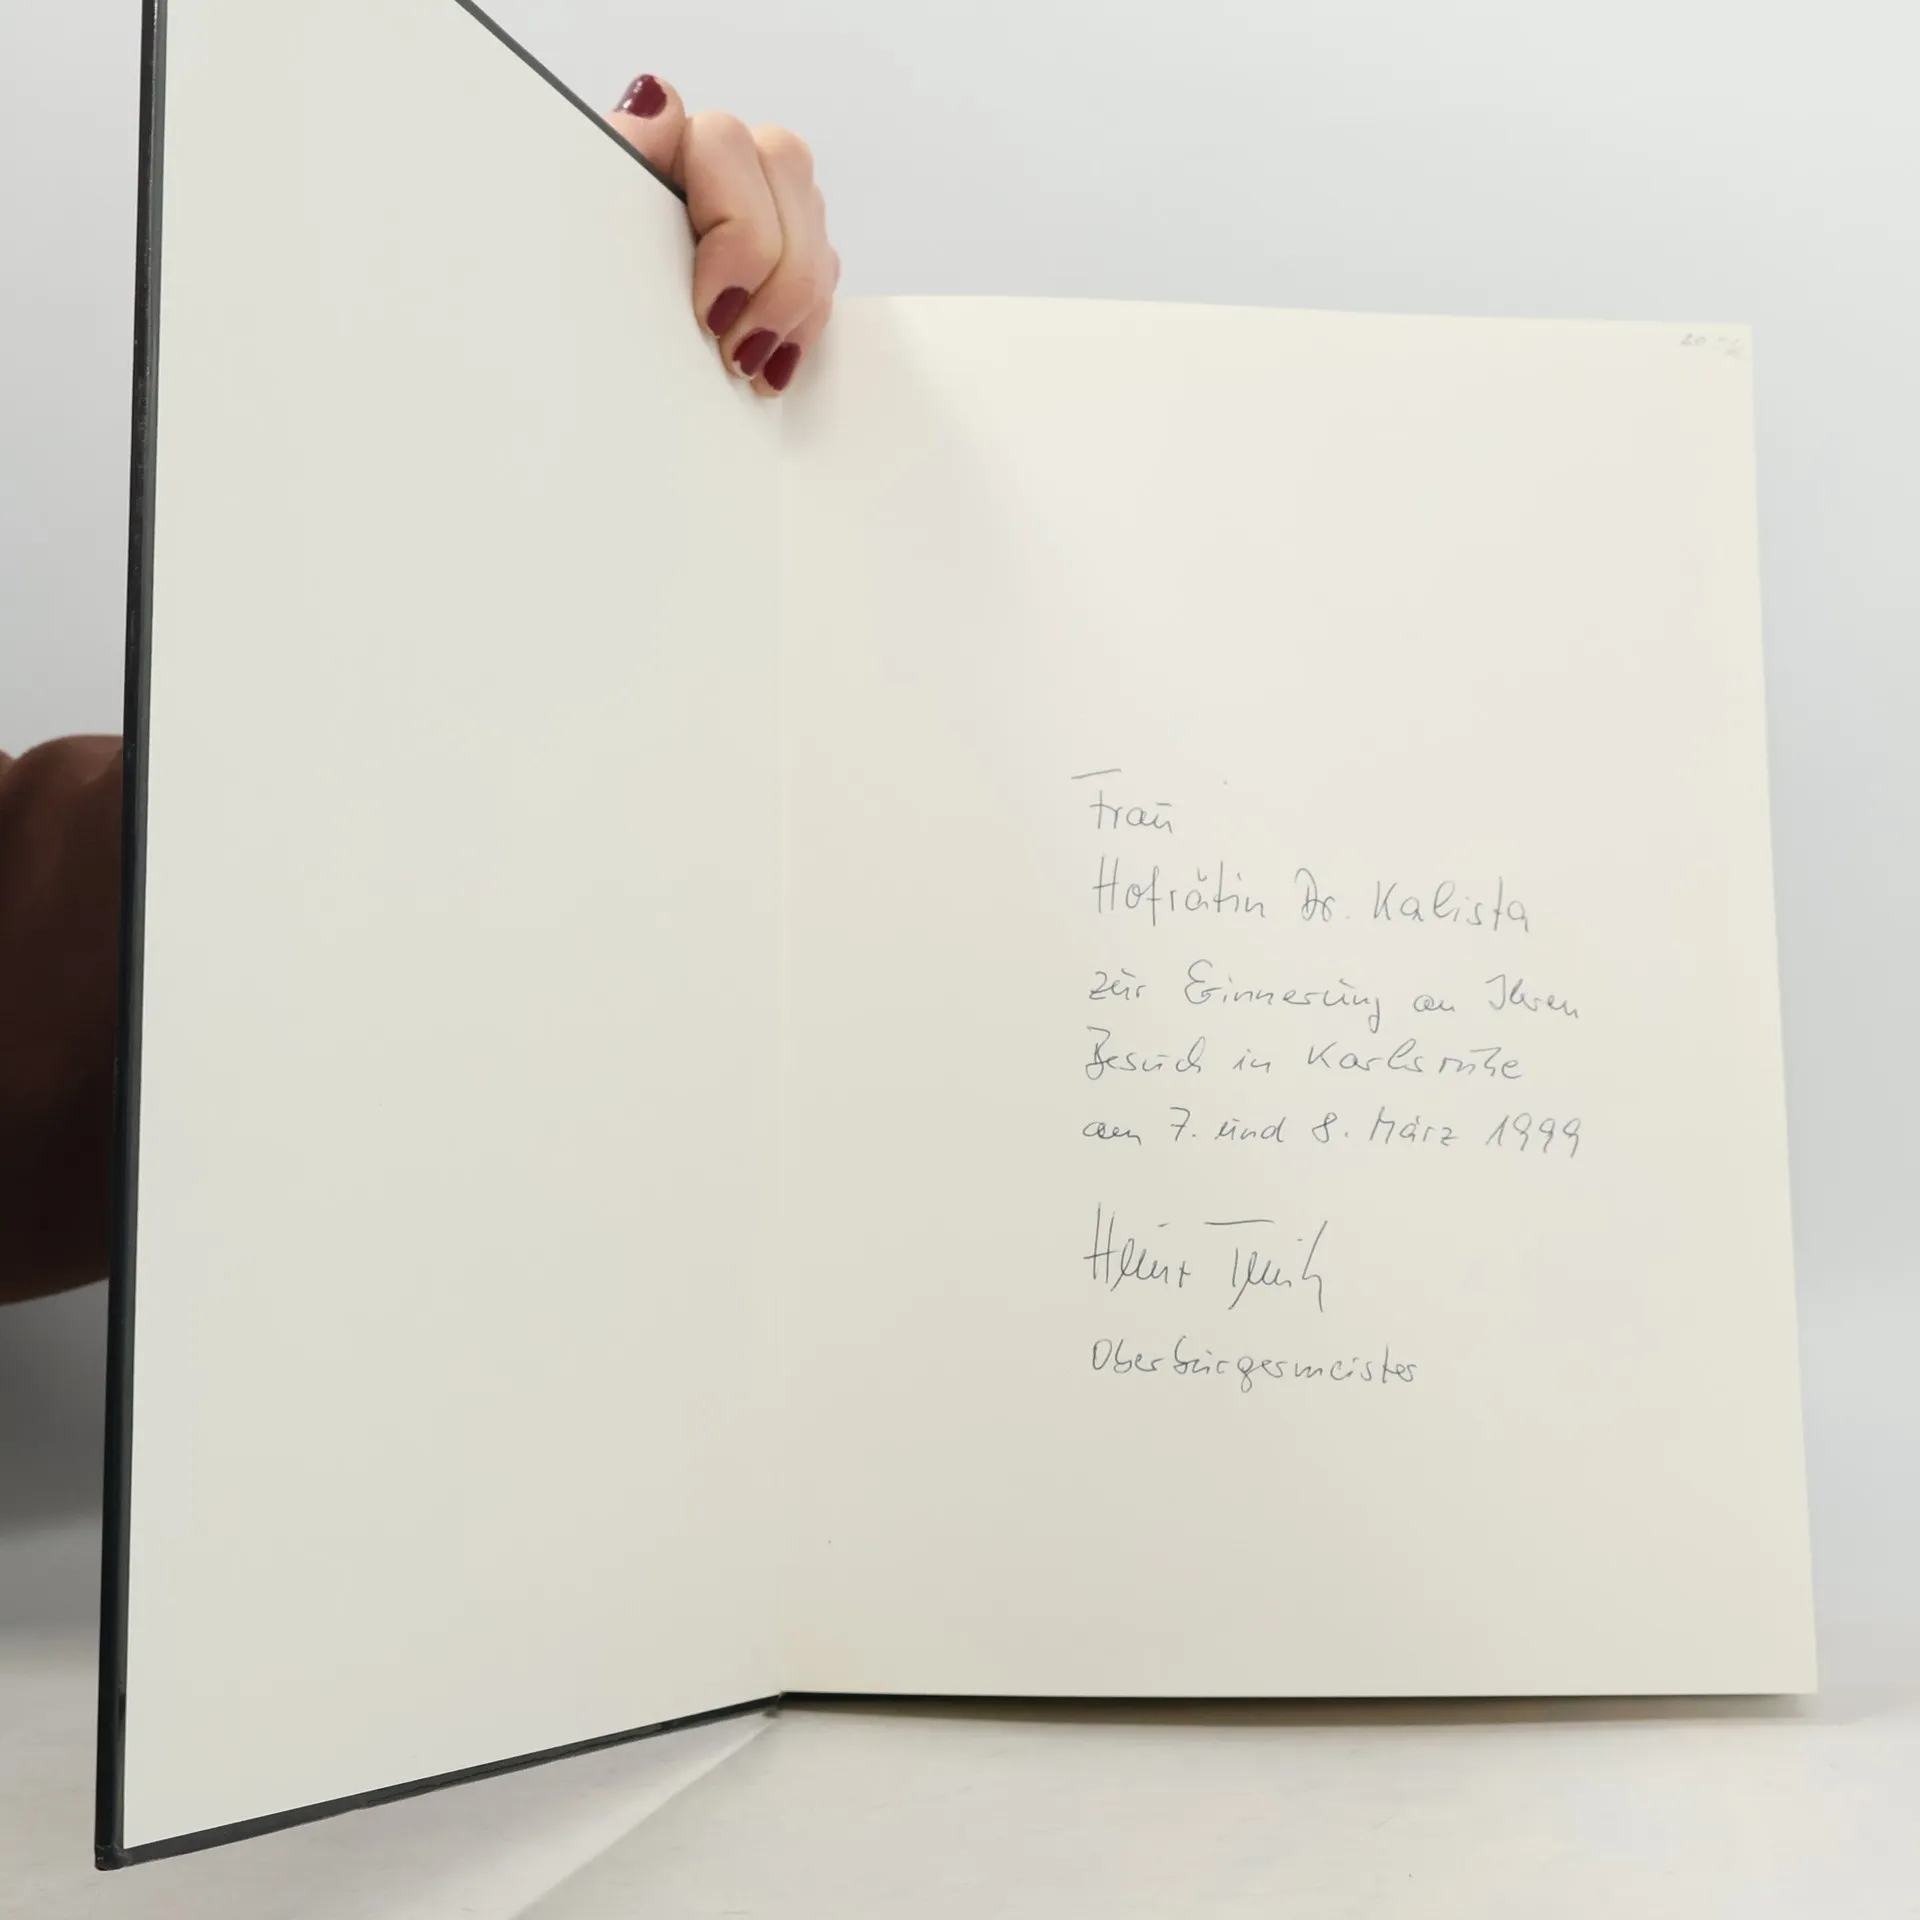 20
Frau
Hofrätin Dr. Kalista
zur Erinnerung an Ihren
Besuch in Karlsruhe
am 7. und 8. März 1999
Heinz
Oberbürgermeister